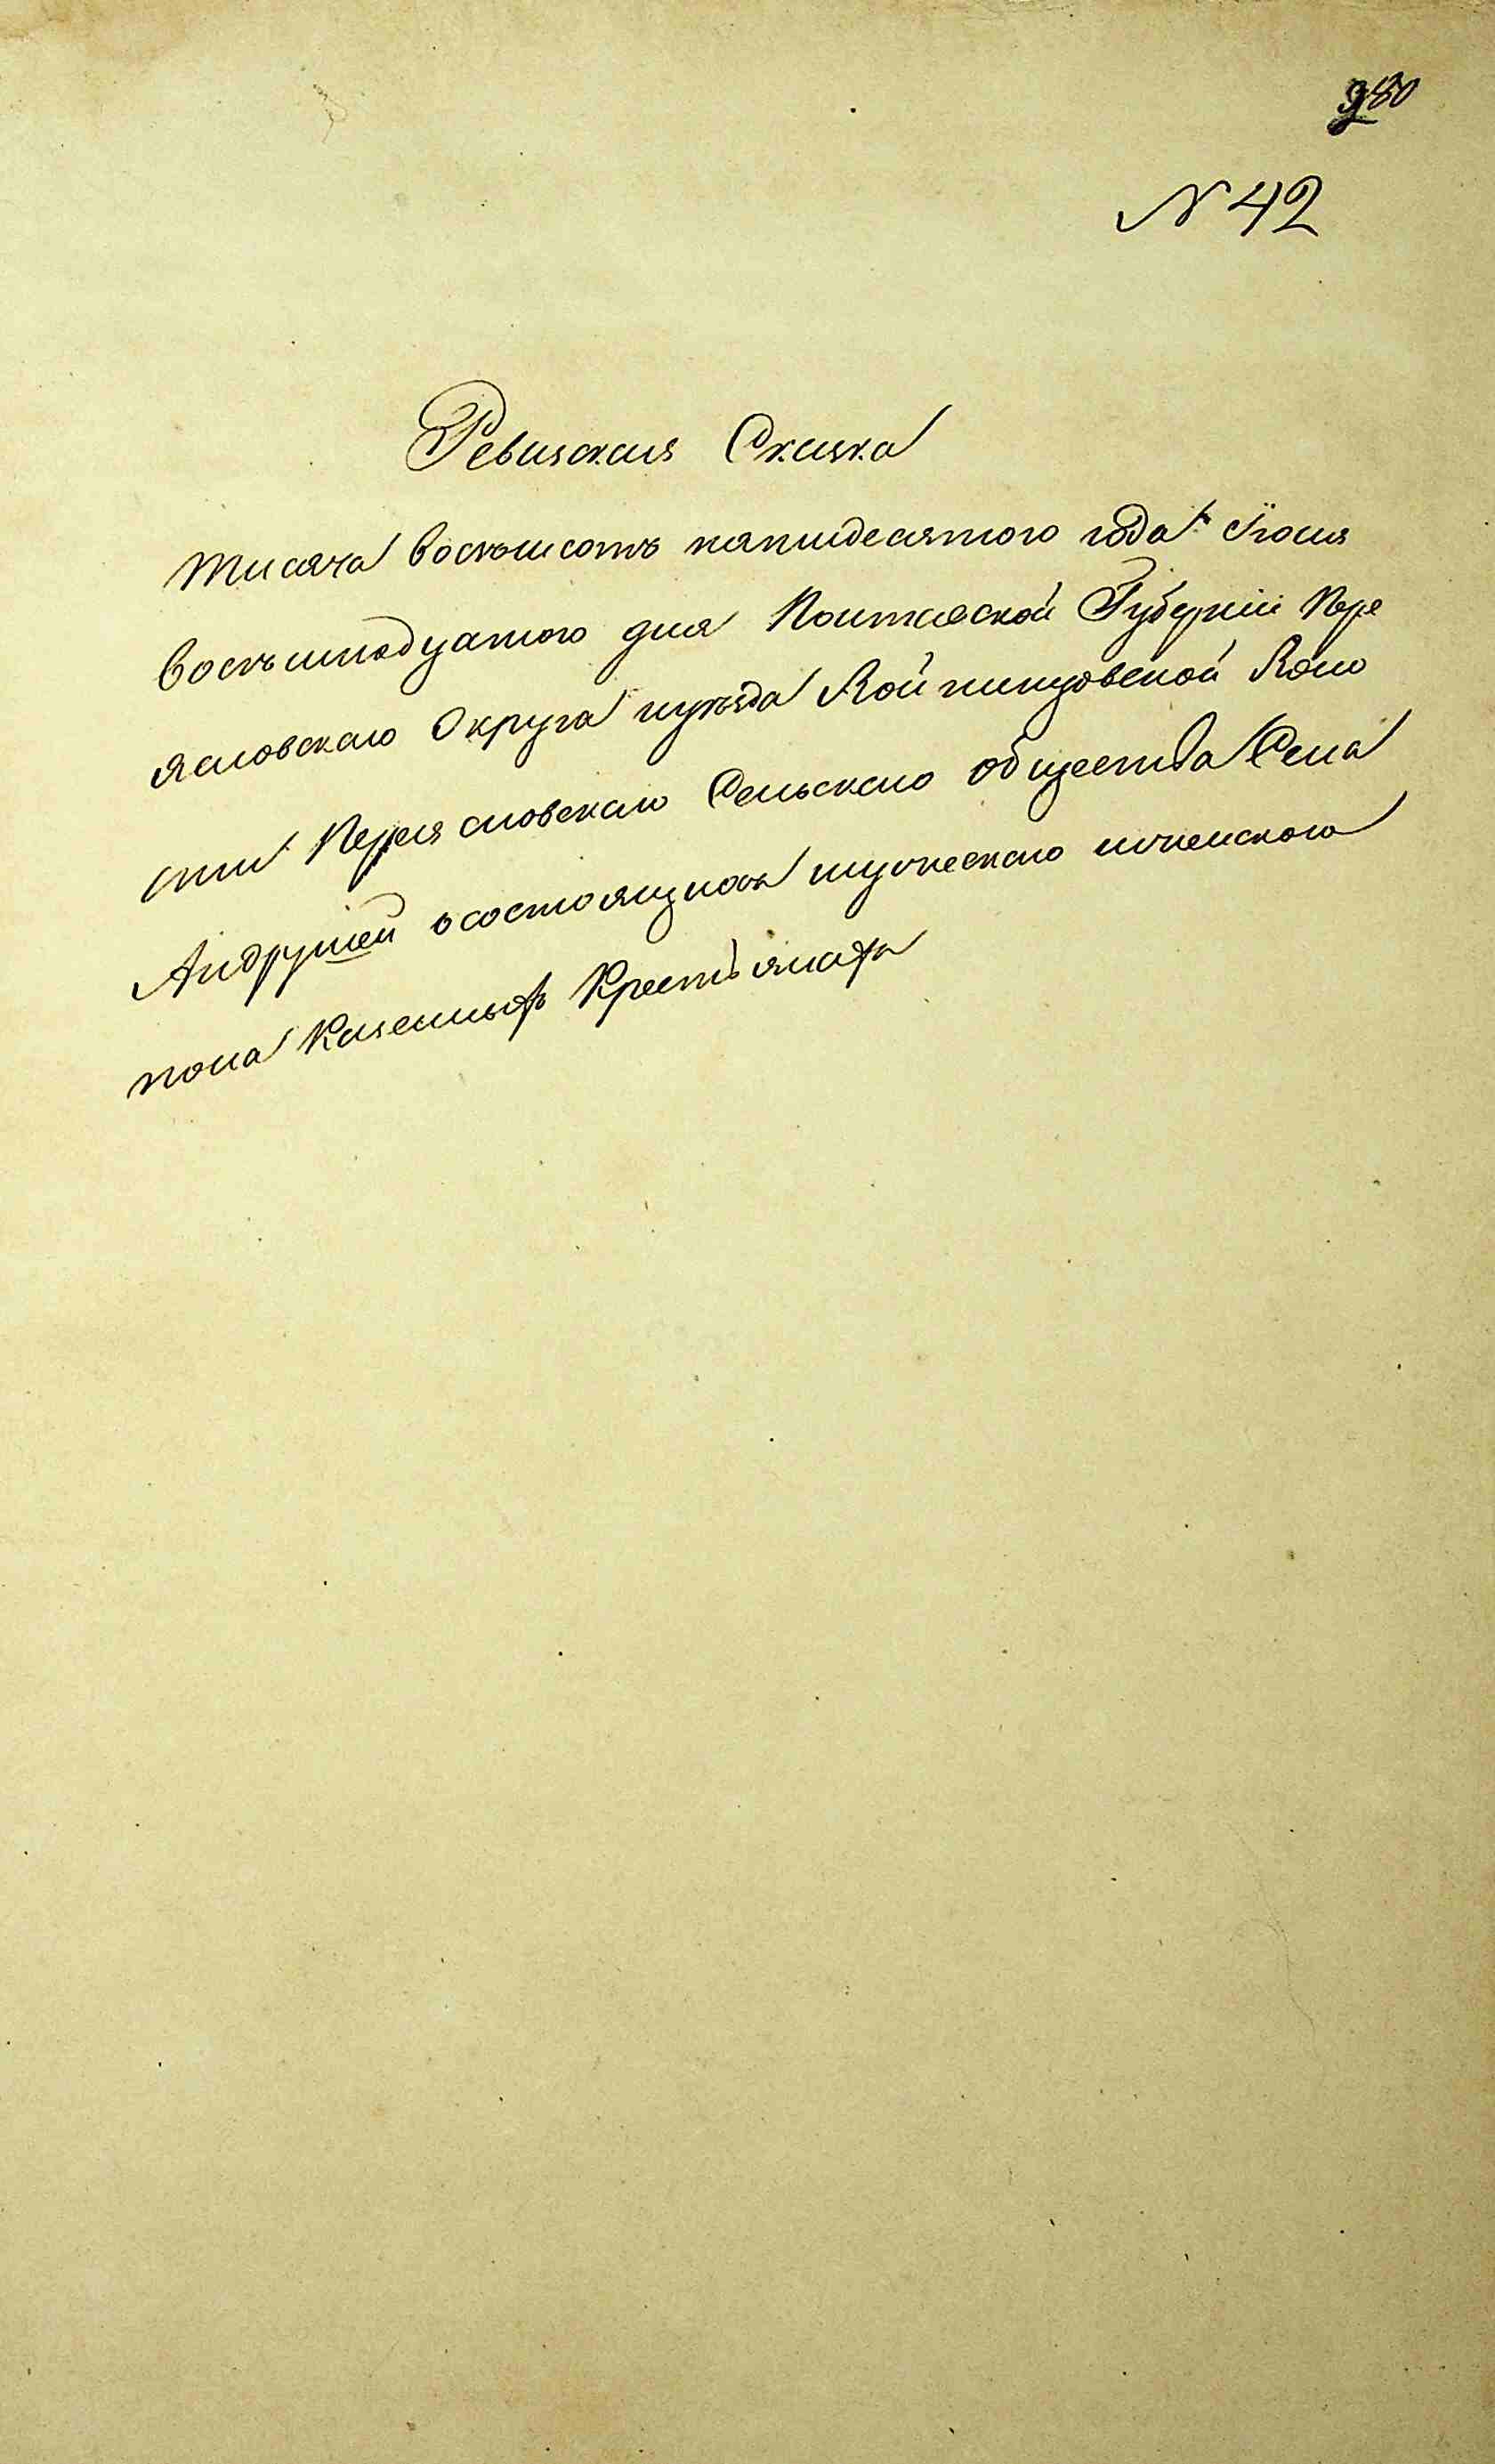 980
N 42
Ревизская Сказка
Тисяча восемьсотъ пятидесятого года Іюля
восемьнадцатого дня Полтавской Губерніи Пере
яславскаго Округа иуѣзда Войтинцовской Воло
сти Переяславскаго Сельскаго общества Села
Андрушей осостоящихъ мужескаго иженскаго
пола Казенныхъ Крестьянахъ